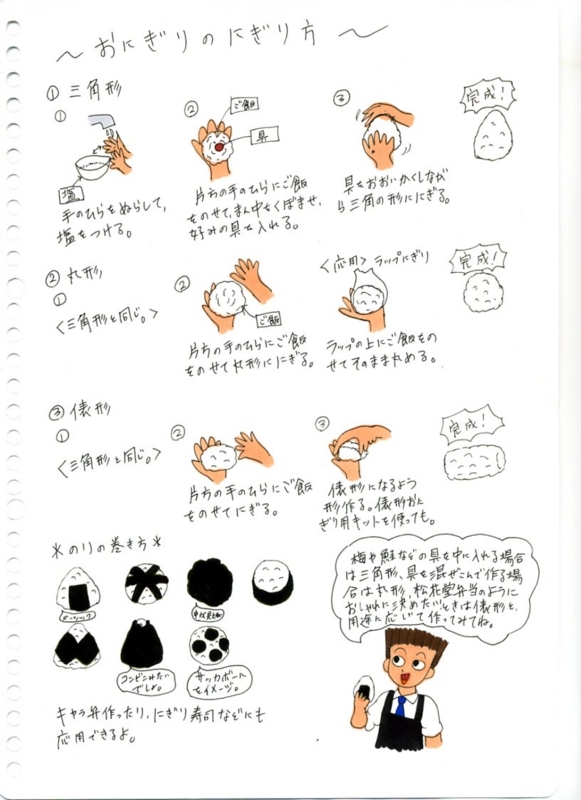 ～おにぎりのにぎり方～
① 三角形
①
塩
手のひらをぬらして、
塩をつける。
②
ご飯
具
片方の手のひらにご飯
をのせて、まん中をくぼませ、
好みの具を入れる。
③
具をおおいかくしなが
ら三角の形ににぎる。
完成!
② 丸形
①
〈三角形と同じ。〉
②
ご飯
片方の手のひらにご飯
をのせて丸形ににぎる。
〈応用〉ラップにぎり
ラップの上にご飯をの
せてそのまま丸める。
完成!
③ 俵形
①
〈三角形と同じ。〉
②
片方の手のひらにご飯
をのせてにぎる。
③
俵形になるよう
形作る。俵形おに
ぎり用キットを使っても。
完成!
*のりの巻き方*
ベーシック
コンビニみたい
でしょ。
サッカーボール
をイメージ。
キャラ弁作ったり、にぎり寿司などにも
応用できるよ。
梅や鮭などの具を中に入れる場合
は三角形、具を混ぜこんで作る場
合は丸形、松花堂弁当のように
おしゃれに決めたいときは俵形と、
用途に応じて作ってみてね。